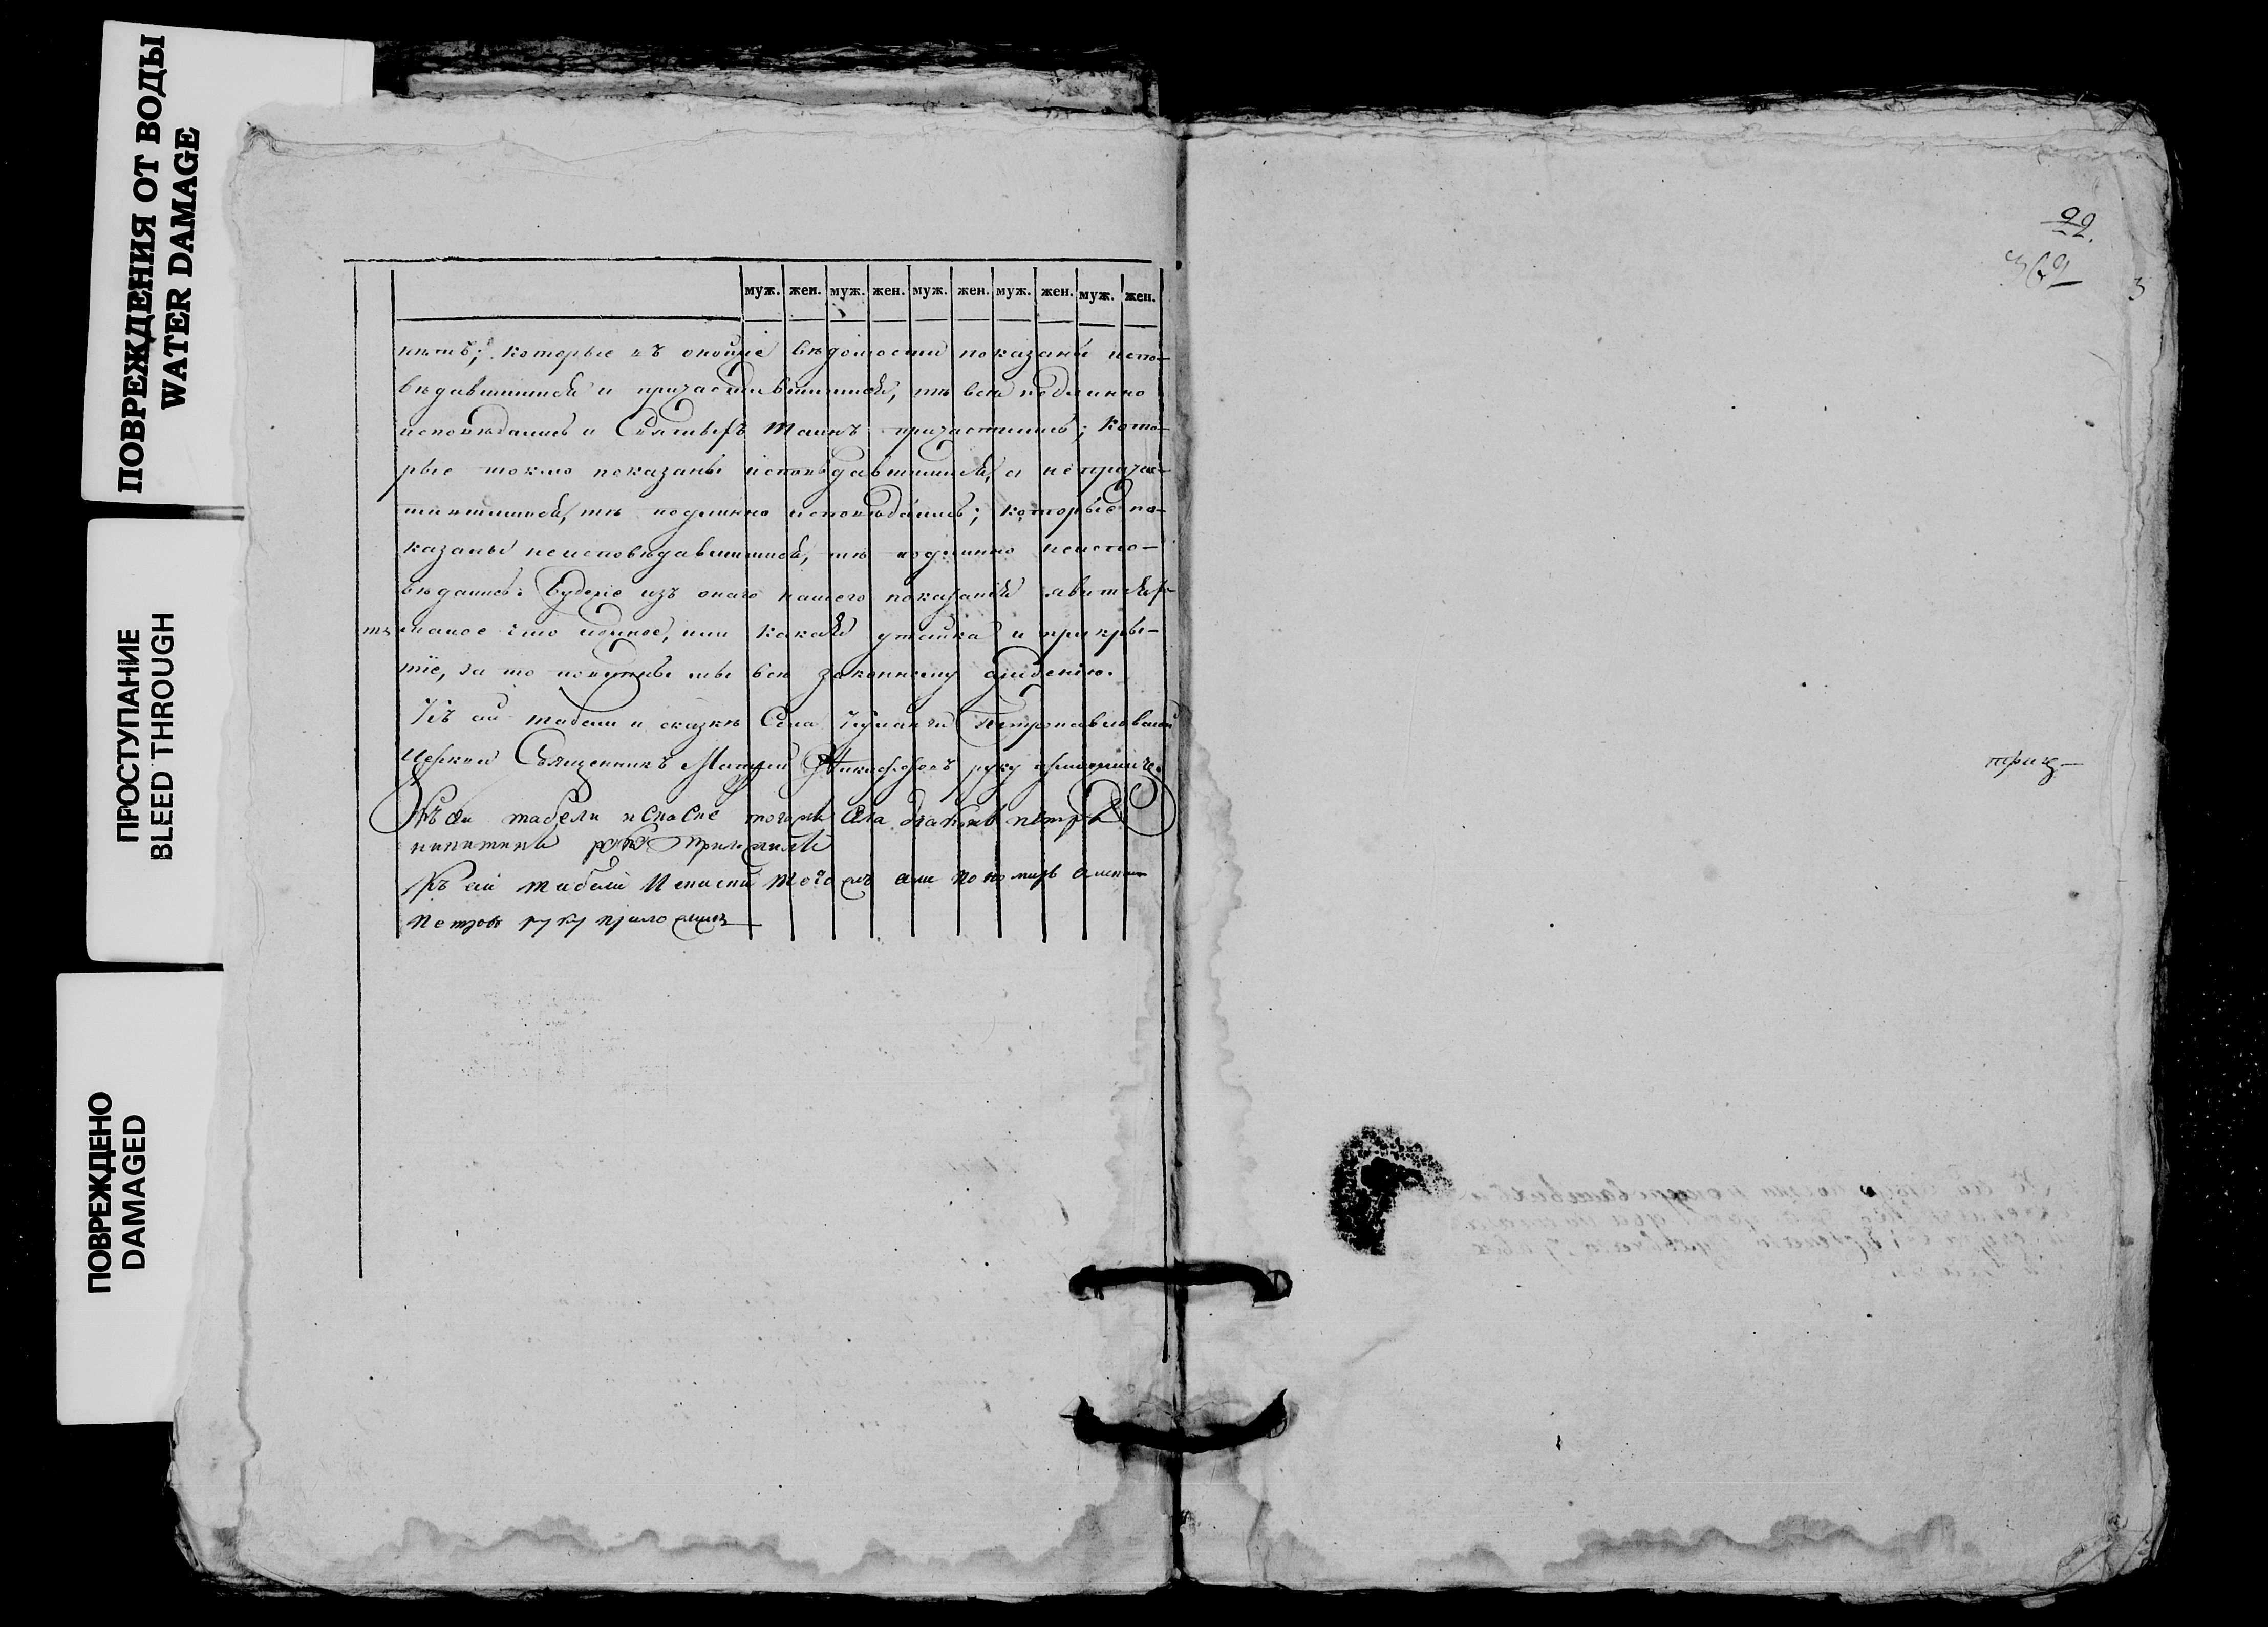 ПОВРЕЖДЕНИЯ ОТ ВОДЫ
WATER DAMAGE
ПРОСТУПАНИЕ
BLEED THROUGH
ПОВРЕЖДЕНО
DAMAGED
муж. жен. муж. жен. муж. жен. муж. жен. муж. жен.
нѣтъ; которые въ оной вѣдомости показаны испо-
вѣдавшимися и причастившимися, тѣ всѣ подлинно
исповѣдались и Святыхъ Таинъ причастились; кото-
рые токмо показаны исповѣдавшимися, а непричас-
тившимися, тѣ подлинно исповѣдались; которые по-
казаны неисповѣдавшимися, тѣ подлинно неиспо-
вѣдались. Буде же изъ онаго нашего показанія явится
что иное, или какая утайка и прикры-
тіе, за то повинны мы всѣ законному сужденію.
Къ сей табели и сказкѣ Села Петропавловской
Церкви Священникъ Матфій Никифоровъ руку приложилъ.
Къ сей табели и тогожъ села діаконъ петръ
никитинъ руку приложилъ
Къ сей табели тогожъ села пономарь
Петровъ руку приложилъ
22.
362
3
триц-